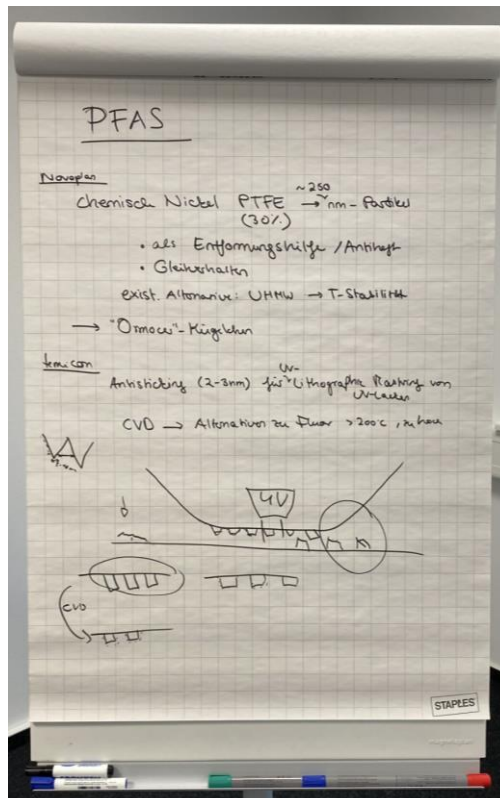 PFAS
Novoplan
~ 250
chemisch Nickel PTFE → nm-Partikel
(30%)
• als Entformungshilfe / Antihaft
• Gleitverhalten
exist. Alternative: UHMW → T-Stabilität
→ "Ormocer"-Kügelchen
temicon
UV-
Antisticking (2-3nm) für Lithographie von
UV-Lacken
CVD → Alternativen zu Fluor >200°C, zu
UV
CVD
STAPLES